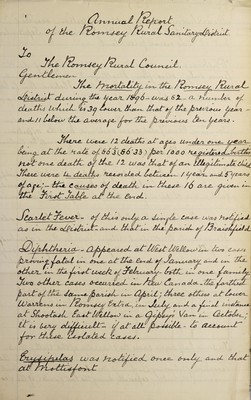 Annual Report
of the Romsey Rural Sanitary District
To
The Romsey Rural Council
Gentlemen
The Mortality in the Romsey Rural
District during the year 1896 was 62. a number of
deaths which is 39 lower than that of the previous year -
and 11 below the average for the previous ten years.
There were 12 deaths at ages under one year
being at the rate of 66.3 (66.33) per 1000 registered births
not one death of the 12 was that of an Illegitimate Child
There were 4 deaths recorded between 1 year and 5 years
of age; - the causes of death in these 16 are given in
the First Table at the end.
Scarlet Fever - of this only a single case was notified
as in the District - and that in the parish of Braishfield
Diphtheria - Appeared at West Wellow in two cases
proving fatal in one at the end of January and in the
other in the first week of February - both in one family.
Two other cases occurred in New Canada - the farthest
part of the same parish in April; three others at Lower
Warrens in Romsey Extra, in July and a final instance
at Shootash East Wellow in a Gipsy's Van in October;
it is very difficult - if at all possible - to account
for these isolated cases.
Erysipelas was notified once only and that
at Mottisfont